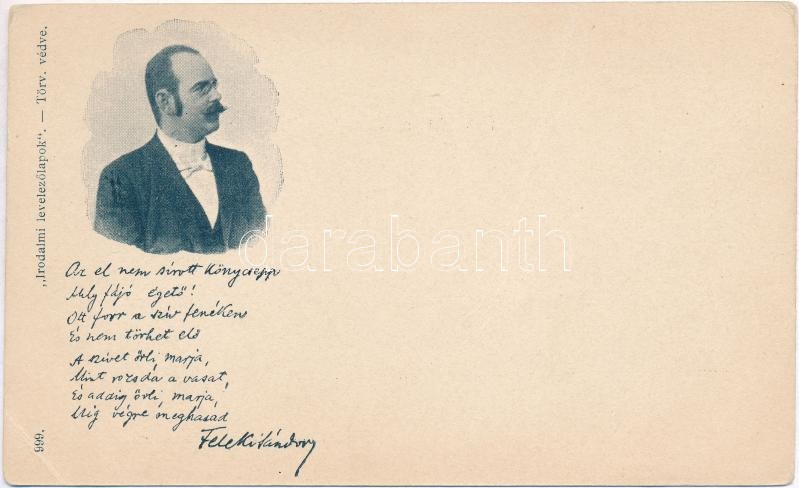 „Irodalmi levelezőlapok“. — Törv. védve.
999.
Az el nem sírott könycsepp
Mily fájó égető!
Ott forr a szív fenekén
És nem törhet elő
A szívet őrli, marja,
Mint rozsda a vasat,
És addig őrli, marja,
Míg végre meghasad
Feleki Sándor
darabanth